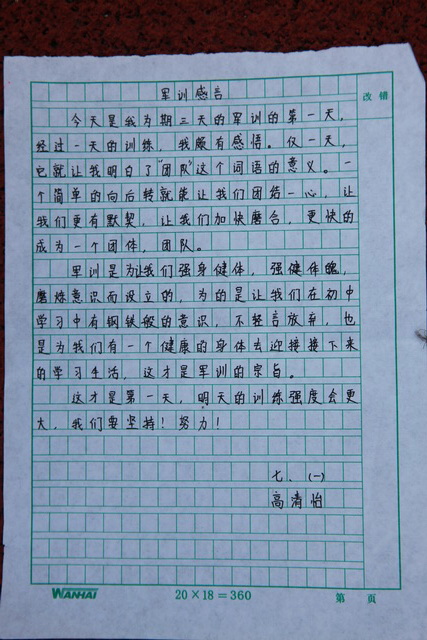 军训感言
改错
今天是我为期三天的军训的第一天，
经过一天的训练，我颇有感悟。仅一天，
它就让我明白了“团队”这个词语的意义。一
个简单的向后转就能让我们团结一心，让
我们更有默契，让我们加快磨合，更快的
成为一个团体，团队。
军训是为让我们强身健体，强健体魄，
磨炼意识而设立的，为的是让我们在初中
学习中有钢铁般的意识，不轻言放弃，也
是为我们有一个健康的身体去迎接接下来
的学习生活，这才是军训的宗旨。
这才是第一天，明天的训练强度会更
大，我们要坚持！努力！
七、（一）
高清怡
WANHAI
20×18=360
第 页